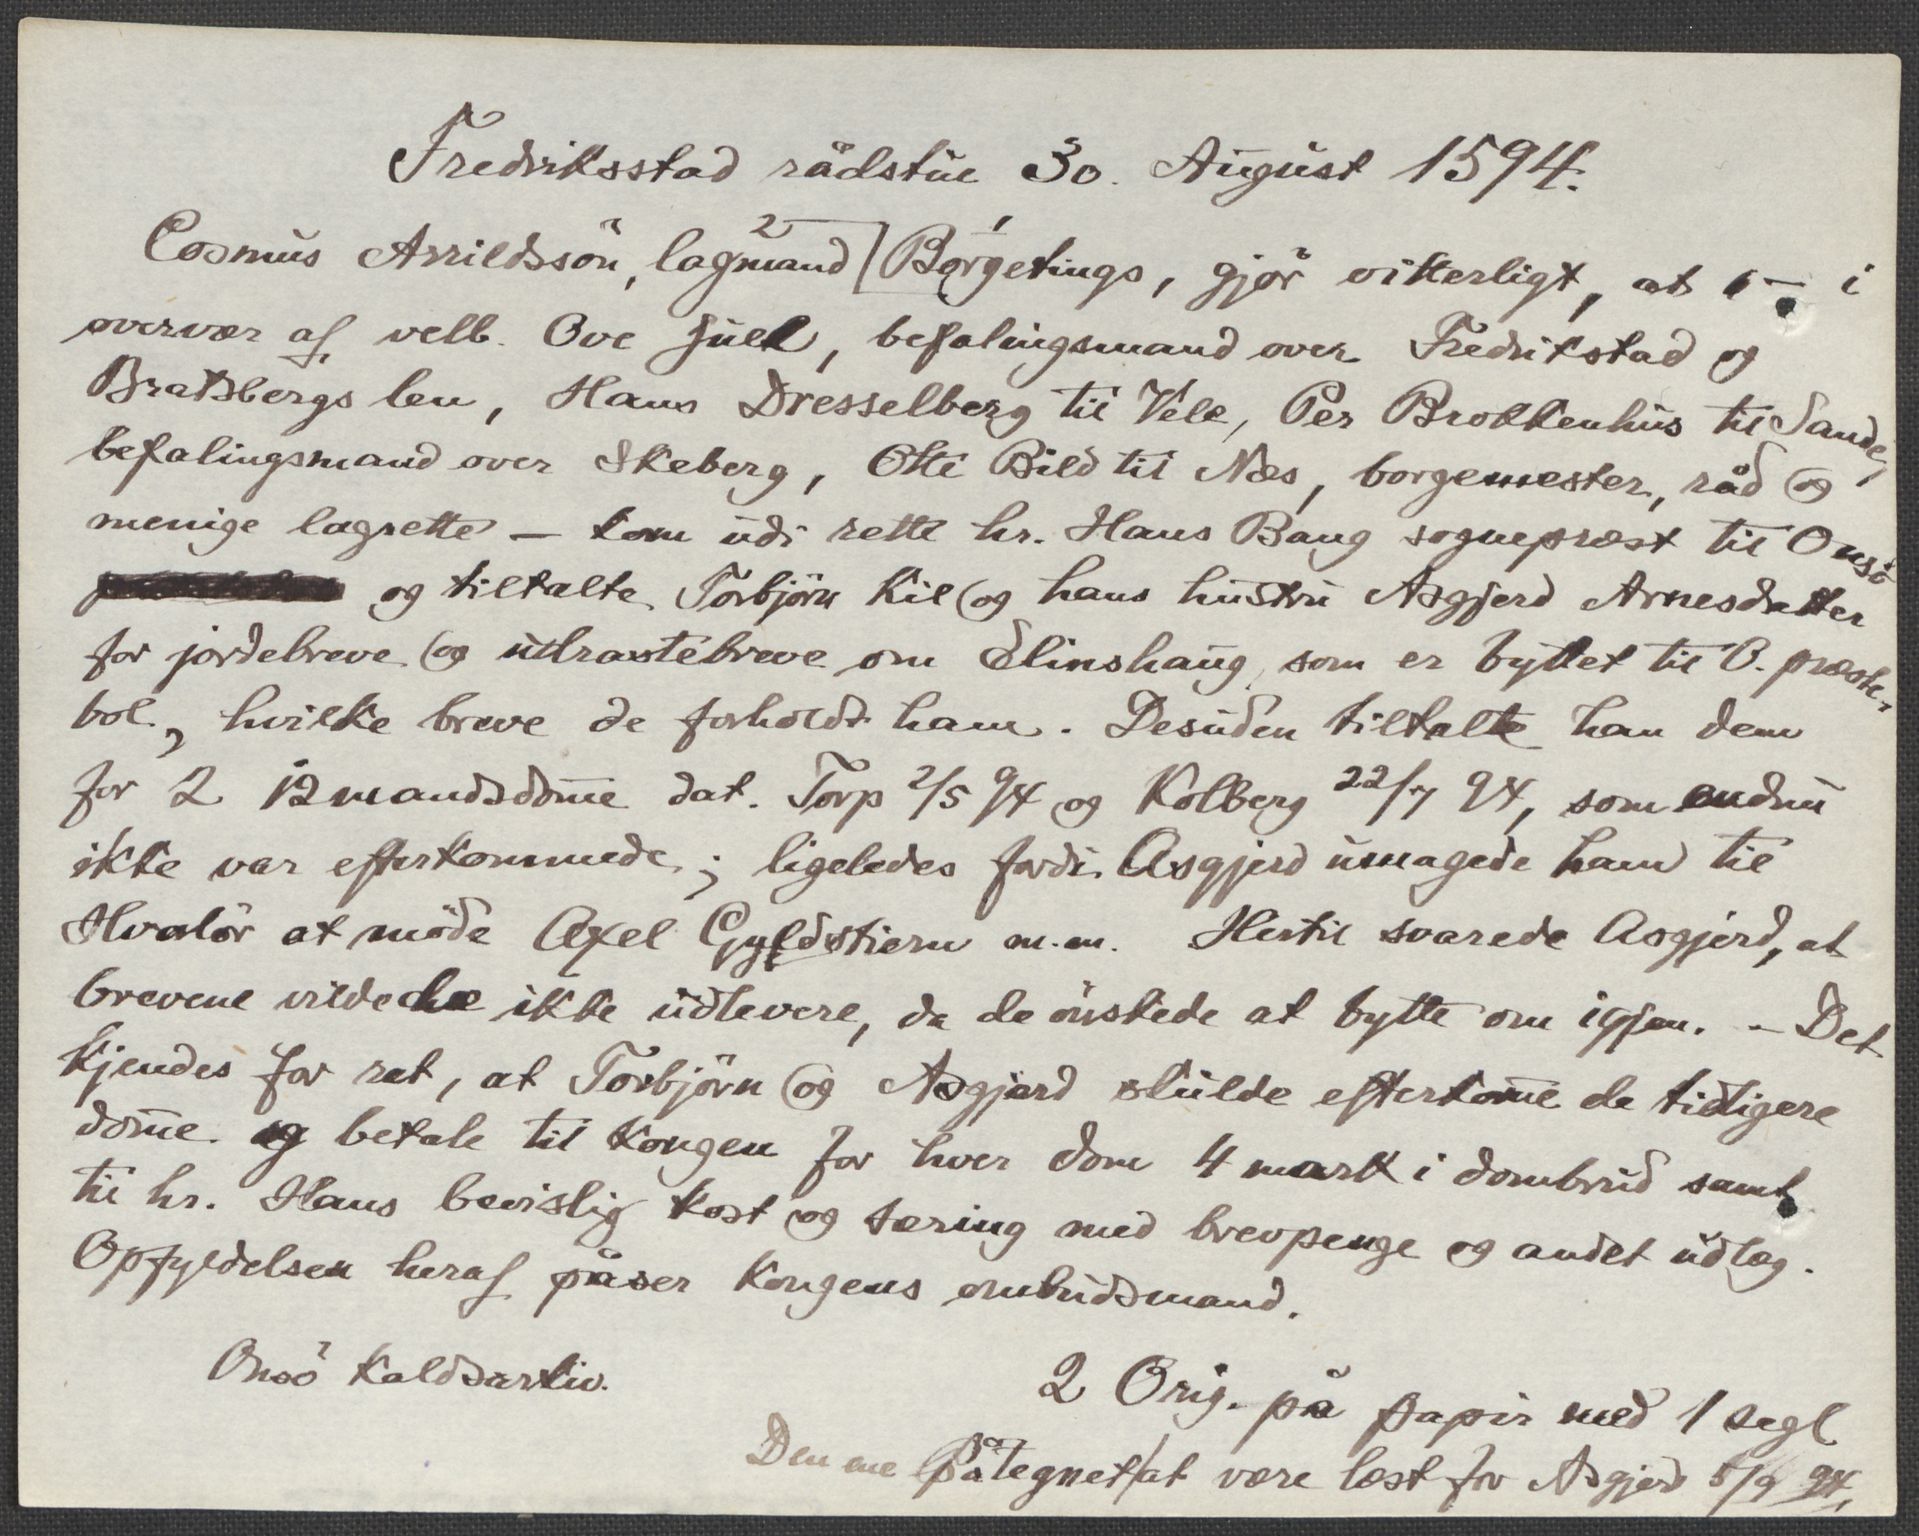 Fredriksstad rådstue 30. August 1594.
Cosmus Arrildssön, lagmand Borgetings, gjör vitterligt, at — i
overvær af velb. Ove Juel, befalingsmand over Fredrikstad og
Bratsbergs len, Hans Dresselberg til Vele, Per Brokkenhus til Sande,
befalingsmand over Skeberg, Otte Bild til Næs, borgemester, råd og
menige lagrette — kom udi rette hr. Hans Bang sogneprest til Onsö
og tiltalte Torbjörn Kil og hans hustru Asgjerd Arnesdatter
for jordebreve og utrastebreve om Elinshaug, som er byttet til O. preste-
bol, hvilke breve de forholdt ham. Desuden tiltalte han dem
for 2 12mandsdom̅e dat. Torp 2/5 94 og Kolberg 22/7 94, som endnu
ikke var efterkommede; ligeledes fordi Asgjerd umagede ham til
Hvalör at möde Axel Gyldstiern m.m. Hertil svarede Asgjerd, at
brevene vilde de ikke udlevere, da de önskede at bytte om igjen. – Det
kjendes for ret, at Torbjörn og Asgjerd skulde efterkom̅e de tidligere
dom̅e og betale til Kongen for hver dom 4 mark i dombrud samt
til hr. Hans bevislig kost og tæring med brevpenge og andet udlæg.
Opfyldelsen heraf påser Kongens ombudsmand.
Onsö Kaldsarkiv.
2 Orig. på papir med 1 segl
Den ene påtegnet at være læst for Asgjerd 5/9 94.